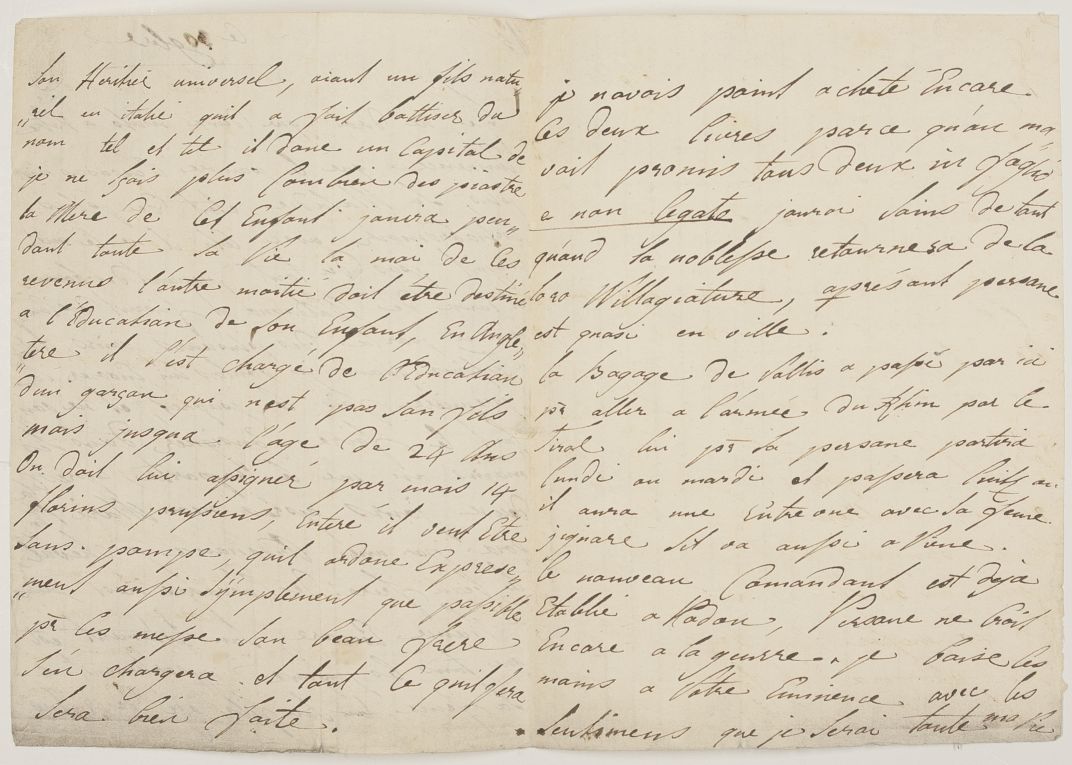 Son Heritié universel, aiant un fils natu
"rel en italie quil a fait battiser du
nom tel et tel il done un Capital de
je ne sçais plus Combien des piastre
la Mere de Cet Enfant jouira pen"
dant toute sa Vie la moi de Ces
revenus l'autre moitie doit être destiné
a l'Education de Son Enfant, En Angle"
"tere il s'est chargé de l'Education
dun garçon qui nest pas Son fils
mais jusqua l'age de 24 Ans
On doit lui assigner par mois 14
florins prussiens, Enteré il veut Etre
Sans pompe, quil ordone Exprese"
"ment aussi Symplement que possible
pr les messe Son beau frere
S'en chargera et tout Ce quil fera
Sera bien faite.
je navois point acheté Encore
Ces deux livres parce qu'on ma
voit promis tous deux in
e non legato jaurai Soins de tout
quand la noblesse retournera de la
loro Willagiature, aprésent persone
est quasi en ville.
la Bagage de Vallis a passé par ici
pr aller a l'armée du Rhin par le
Tirol lui pr sa persone partira
lundi ou mardi et passera
il aura une Entrevue avec Sa feme
jignore Sil va aussi a Viene.
le nouveau Comandant est deja
Etablie a Padou, Persone ne Croit
Encore a la guerre. je baise les
mains a Votre Eminence avec les
Sentimens que je Serai toute ma Vie